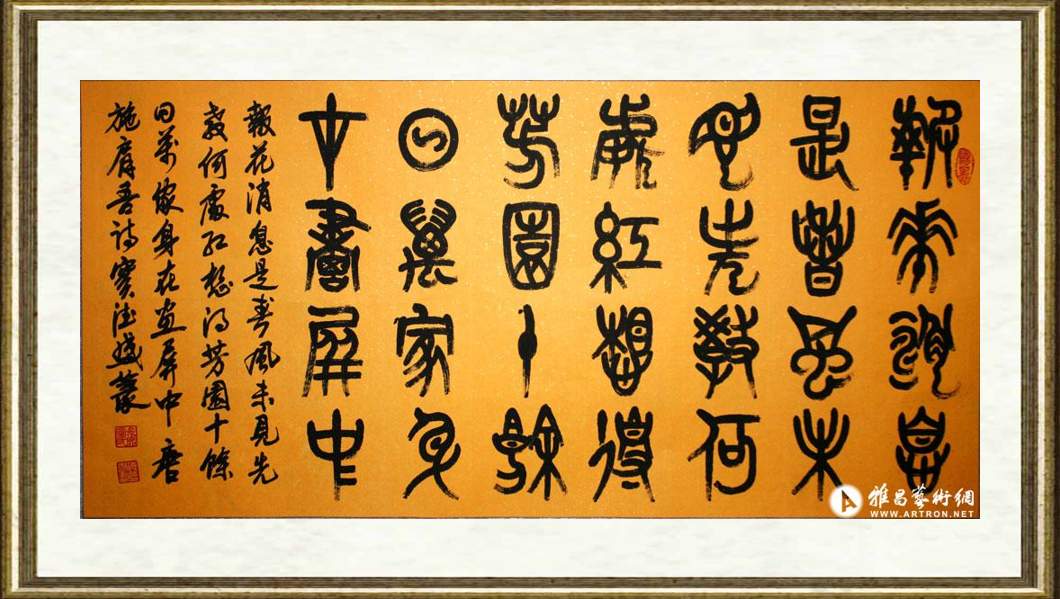 報花消息
是春風未
見先教何
處紅想得
芳園十餘
日萬家身
在畫屏中
報花消息是春風未見先
教何處紅想得芳園十餘
日萬家身在画屏中唐
施肩吾詩
雅昌藝術網
WWW.ARTRON.NET